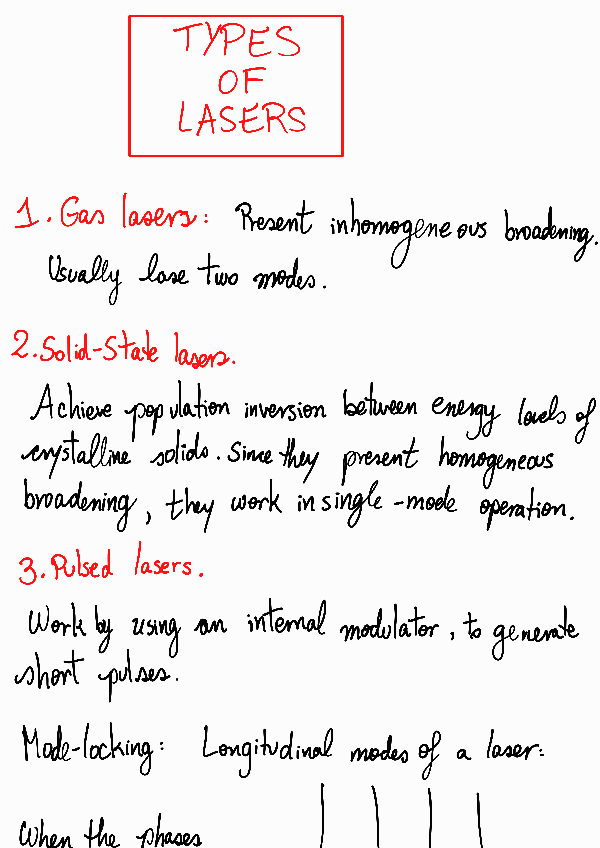 TYPES
OF
LASERS
1. Gas lasers: Present inhomogeneous broadening.
Usually lase two modes.
2. Solid-State lasers.
Achieve population inversion between energy levels of
crystalline solids. Since they present homogeneous
broadening, they work in single-mode operation.
3. Pulsed lasers.
Work by using an internal modulator, to generate
short pulses.
Mode-locking: Longitudinal modes of a laser:
When the phases